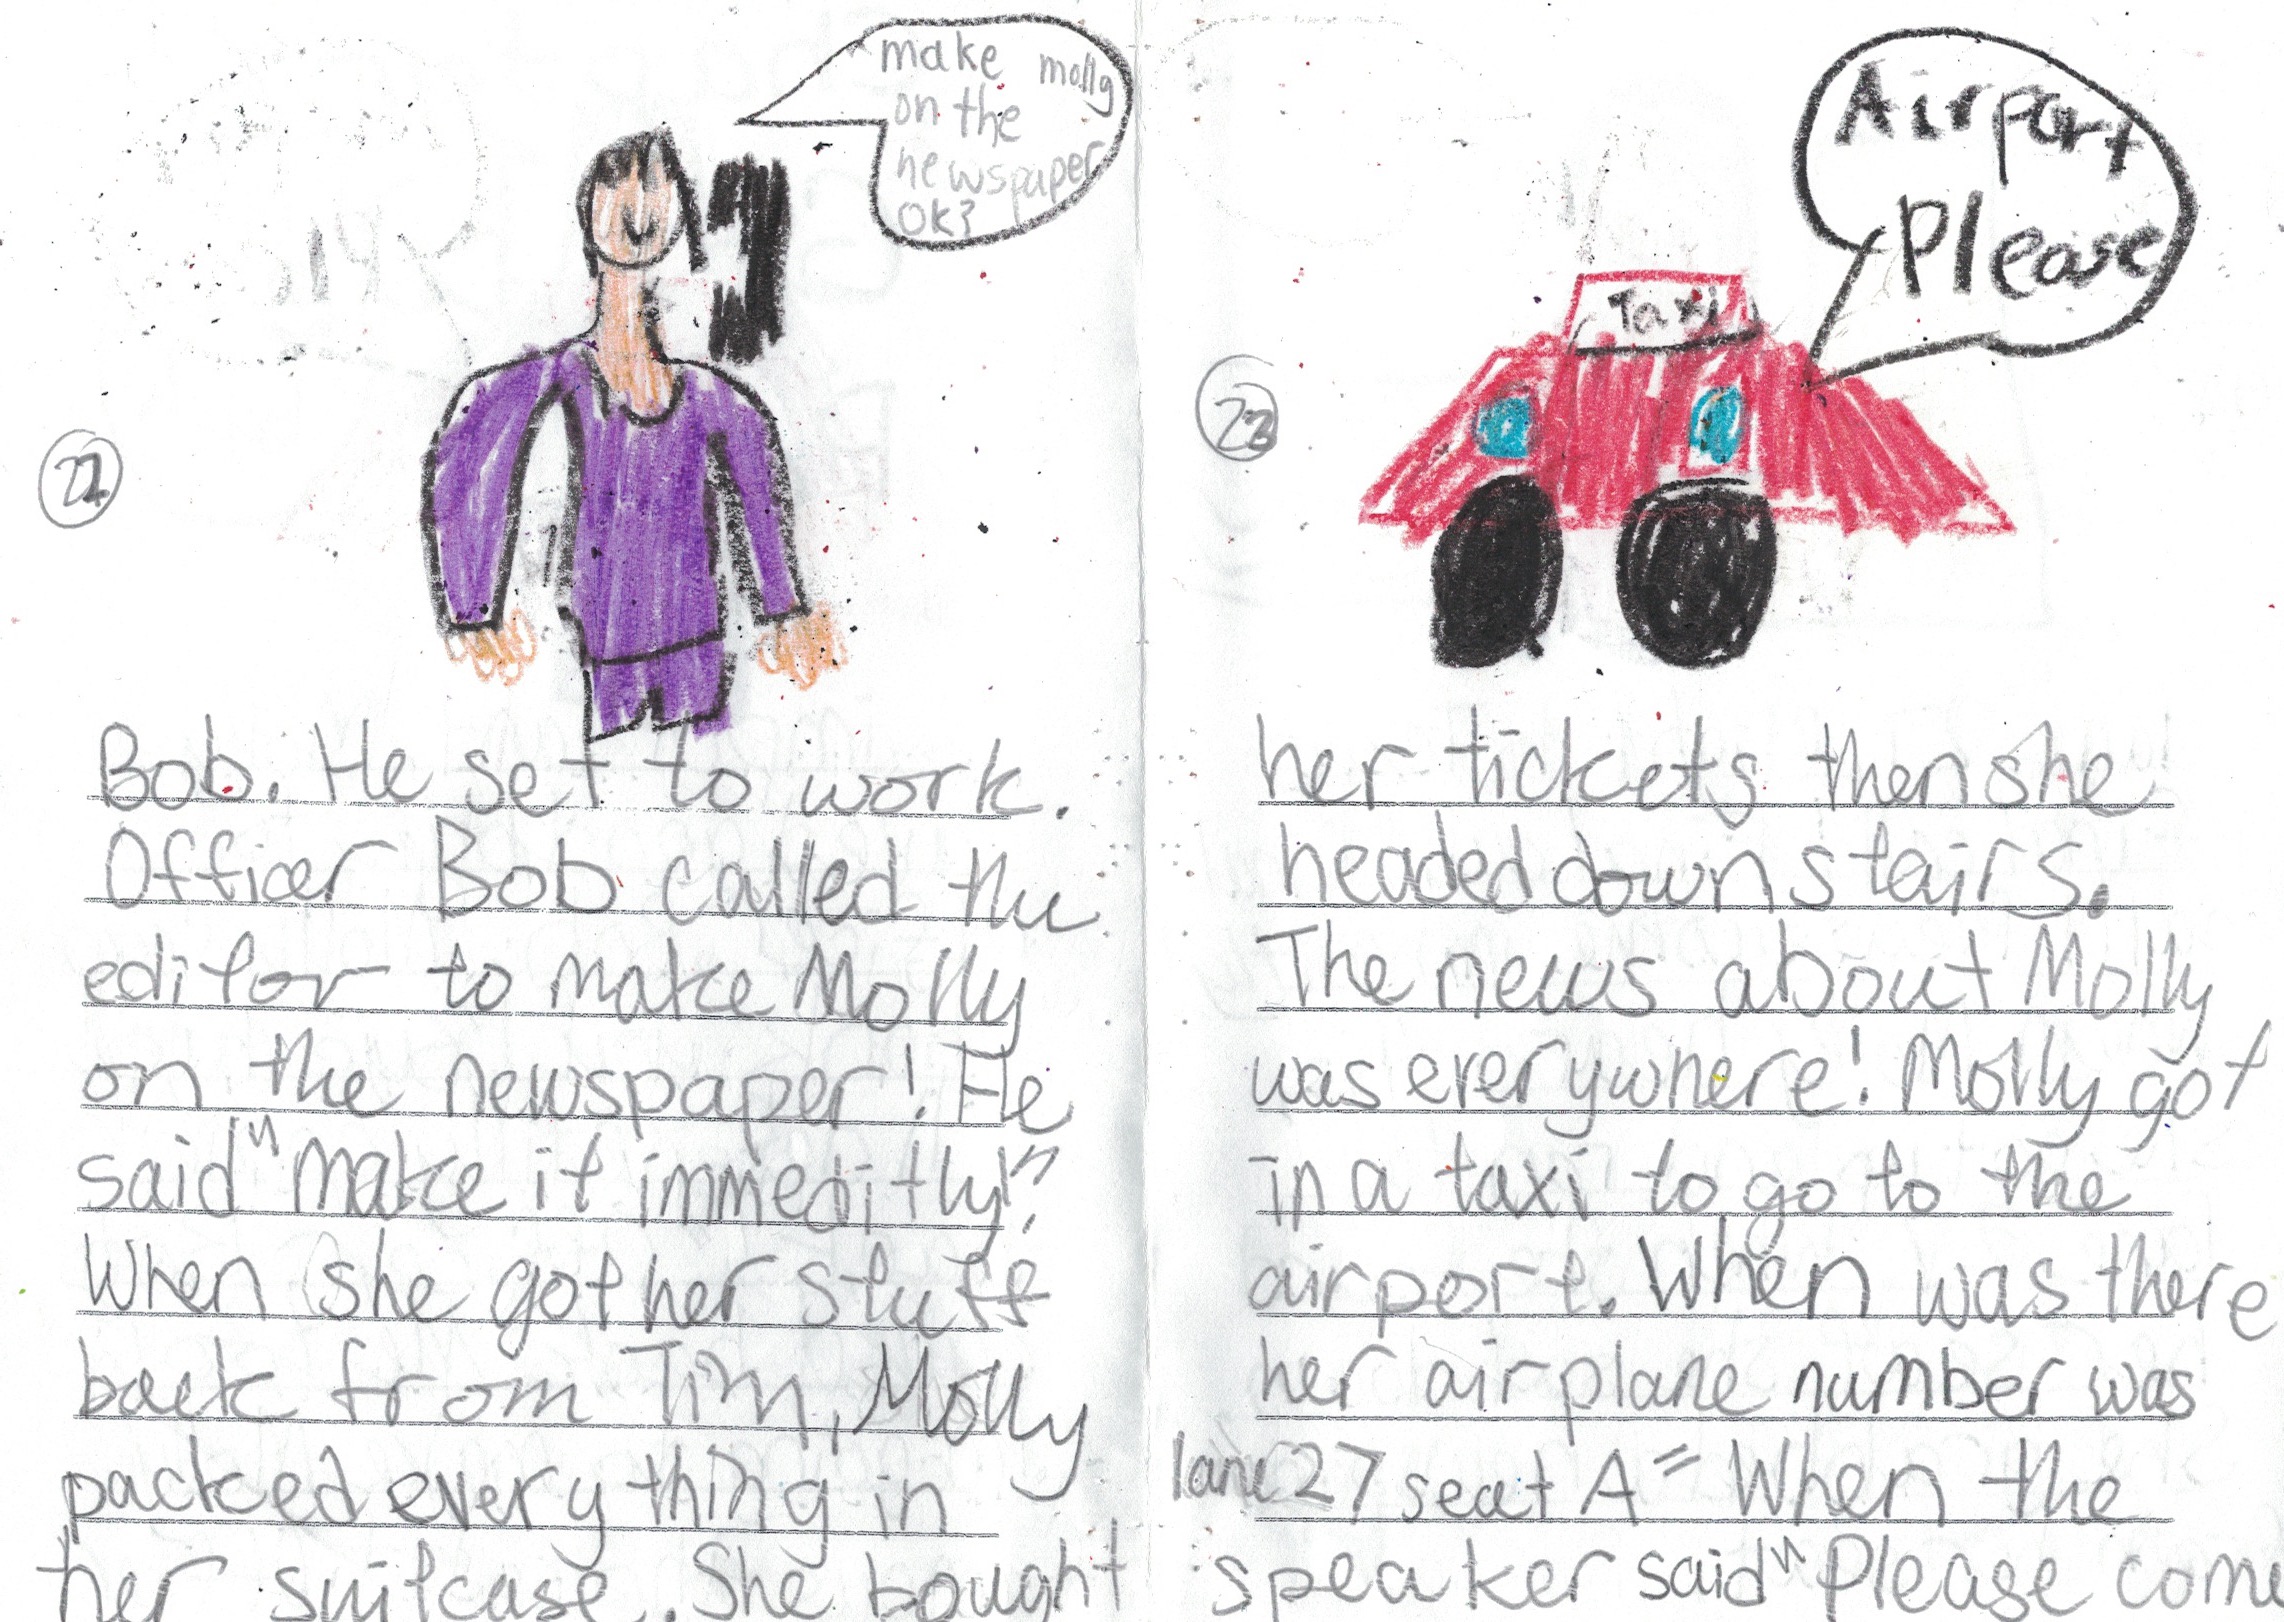 make molly
on the
newspaper
OK?
22
Bob. He set to work.
Officer Bob called the
editor to make Molly
on the newspaper! He
said "make it immeditly!"
When she got her stuff
back from Tim, Molly
packed every thing in
her suitcase. She bought
Airport
Please
Taxi
23
her tickets then she
headed down stairs.
The news about Molly
was everywhere! Molly got
in a taxi to go to the
airport. When was there
her airplane number was
lane 27 seat A= When the
speaker said "Please come